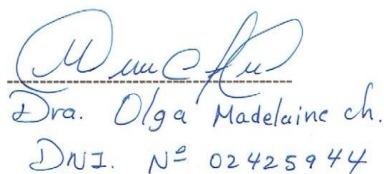 Dra. Olga Madelaine ch.
DNI. Nº 02425944